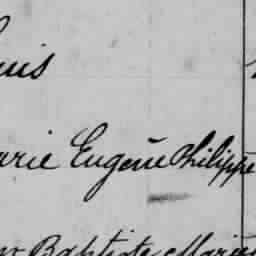 uis
arie Eugène Philippe
Baptiste Marie